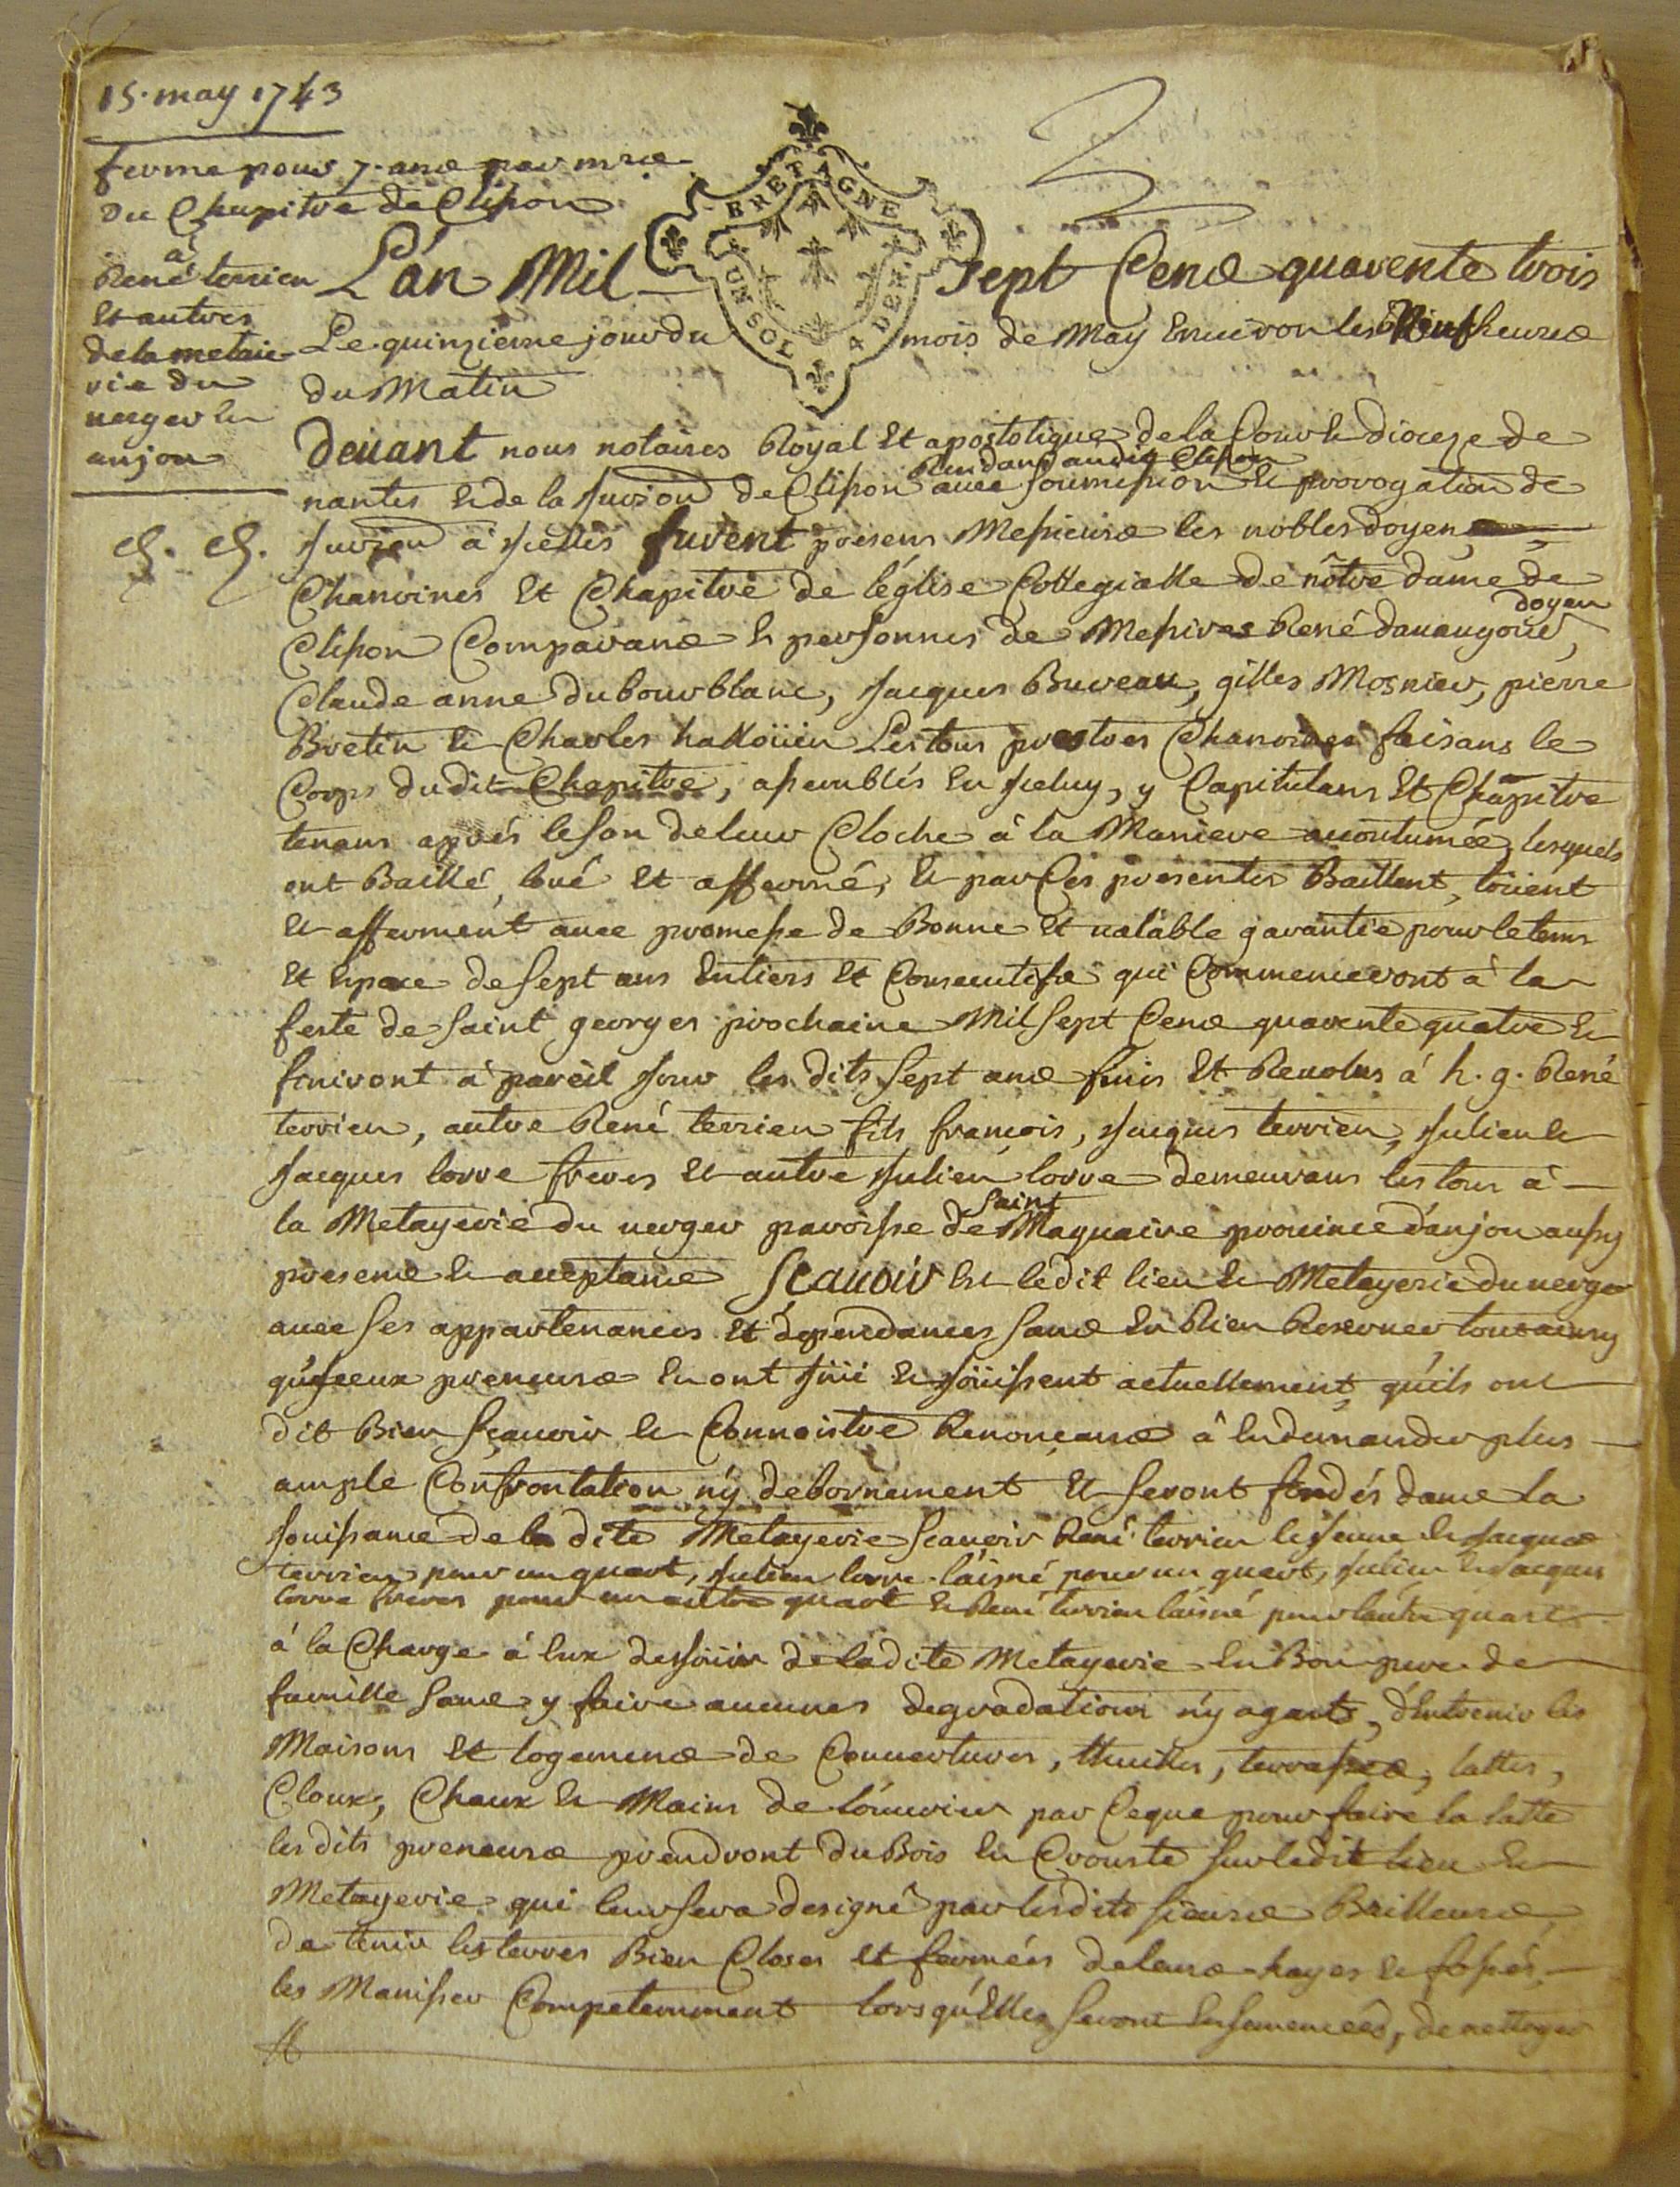 15. may 1743
ferme pour 7. ans par mrs
du Chapitre de Clisson
à
René terrien
et autres
de la metai-
rie du
verger en
anjou
BRETAGNE
UN SOL 4 DEN.
L'an Mil sept Cens quarente trois
Le quinzieme jour du mois de May environ les Neuf heures
du Matin
Devant nous notaires Royal et apostolique de la Cour et dioceze de
Residans audit Clisson
nantes et de la Jurion de Clisson avec soumission et prorogation de
Jurion à icelles furent presens Messieurs les nobles doyen
Chanoines et Chapitre de l'église Collegialle de nôtre dame de
doyen
Clisson Comparans en personnes de Messires René davaugour,
Claude anne dubourblanc, Jacques Bureau, gilles Mosnier, pierre
Bretin et Charles halloüin Les tous prestres Chanoines faisans le
Corps dudit Chapitre, assemblés en iceluy, y Capitulans et Chapitre
tenans aprés le son de leur Cloche à la Maniere acoutumée, lesquels
ont Baillé, loué et affermé, et par Ces presentes Baillent, loüent
et afferment avec promesse de Bonne et valable garantie pour le tems
et espace de sept ans Entiers et Consecutifs qui Commenceront à la
feste de saint georges prochaine Mil sept Cens quarente quatre et
finiront à pareil jour les dits sept ans finis et Revolus à h. g. René
terrien, autre René terrien fils francois, Jacques terrien, Julien et
Jacques lorre freres et autre Julien lorre demeurans les tous à
saint
la Metayerie du verger paroisse de Maquaire province d'anjou aussy
presens et acceptans Scavoir est ledit lieu et Metayerie du verger
avec ses appartenances et dependances sans en Rien Reserver tout ainsy
qu'iceux preneurs en ont joüi et joüissent actuellement, qu'ils ont
dit Bien sçavoir et Connoistre Renonçans à en demander plus
ample Confrontation n'y debornement et seront fondés dans la
jouissance de la dite Metayerie scavoir René terrien le jeune et Jacques
terrien pour un quart, Julien lorre l'aisné pour un quart, Julien et Jacques
lorre freres pour un autre quart et René terrien l'aisné pour l'autre quart
à la Charge à eux de joüir de ladite Metayerie en Bon pere de
famille sans y faire aucunes degradations n'y agasts, d'Entrenir les
Maisons et logemens de Couvertures, thuilles, terrasses, lattes,
Cloux, Chaux et Mains de l'ouvrier par Ceque pour faire la latte
les dits preneurs prendront du Bois en Crouste sur ledit lieu et
Metayerie qui leur sera designé par lesdits sieurs Bailleurs,
de tenir les terres Bien Closes et fermées de leurs hayes et fossés,
les Manisser Competemment lors qu'Elles seront Ensemencées, de nettoyer